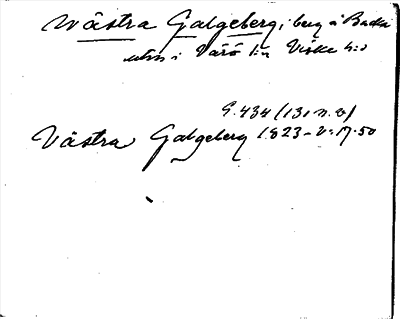 Wästra Galgeberg, i berg å Backa
utm i Värö sn Viske hd
G. 434 (131 n. v)
Västra Galgeberg 1823 - 2:17.50